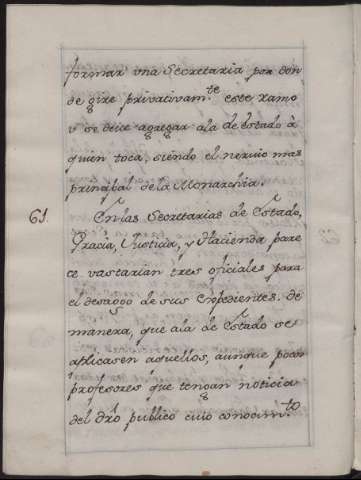 formar vna Secretaria por don
de gire privativam.te este ramo
v se deve agregar ala de estado à
quien toca, siendo el nervio mas
principal de la Monarchia.
61. En las Secretarias de Estado,
Gracia, Justicia, y Hacienda pare
ce vastarian tres oficiales para
el desaogo de sus Expedientes. de
manera, que ala de Estado se
aplicasen aquellos, aunque pocos
profesores que tengan noticia
del dro publico cuio conocim.to